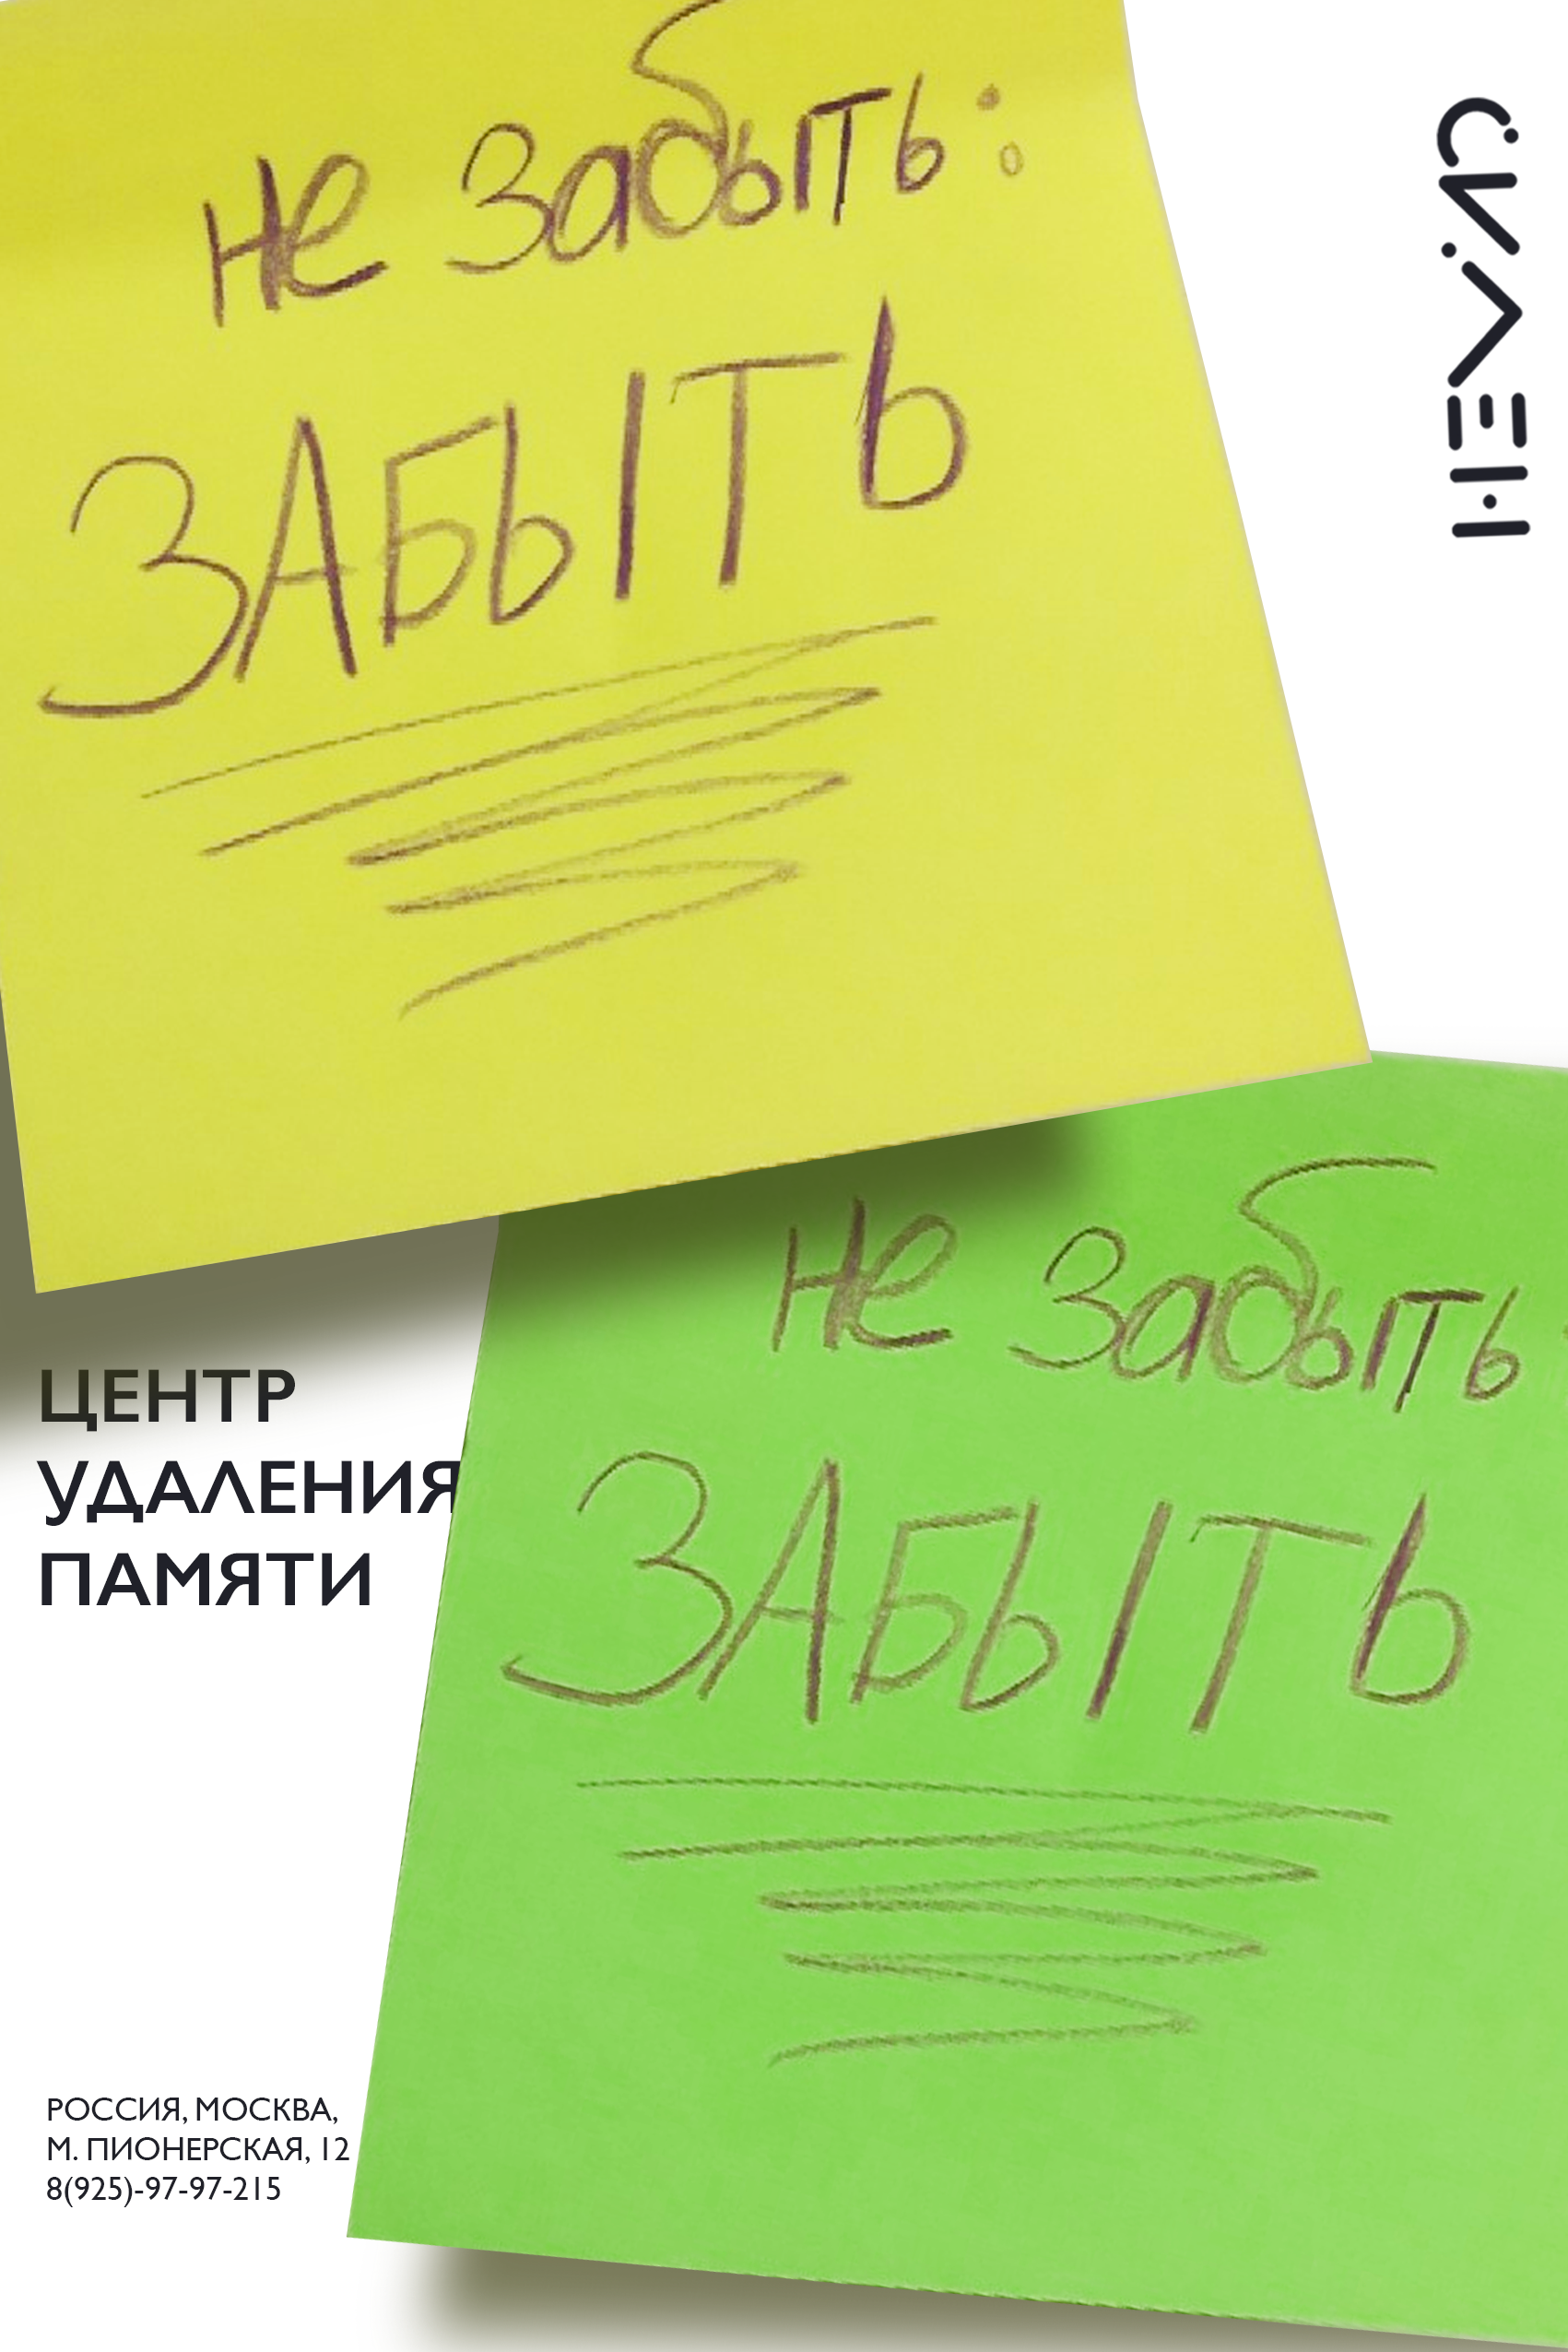 не забыть:
ЗАБЫТЬ
СИЛЕН
не забыть
ЗАБЫТЬ
ЦЕНТР
УДАЛЕНИЯ
ПАМЯТИ
РОССИЯ, МОСКВА,
М. ПИОНЕРСКАЯ, 12
8(925)-97-97-215